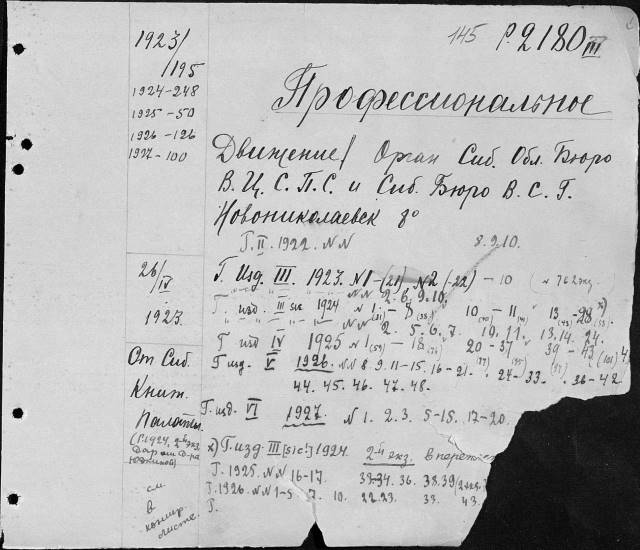 145 Р.2180 III
1923/
/195
1924-248
1925-50
1926-126
1927-100
Профессиональное
Движение! Орган Сиб. Обл. Бюро
В. Ц. С. П. С. и Сиб. Бюро В. С. Г.
Новониколаевск 8°
Г. II. 1922. NN 8.9.10.
26/IV
1923.
Г. Изд. III. 1923. N1-(21) N2(-22) - 10
NN 2. 6. 9. 10.
Г. изд. III sic 1924 N 1 - 8 10 - 11 13 - 28 x)
NN 2. 5. 6. 7. 10. 11. 13. 14. 24.
Г. изд IV 1925 N 1(59) - 18 20 - 37 39 - 43
От Сиб.
Книж.
Палаты
(Г. 1924, 2й экз.
Дар от Д-ра
Г. изд. V 1926. NN 8. 9. 11-15. 16-21. 24-33. 36-42
44. 45. 46. 47. 48.
Г. изд. VI 1927. N 1. 2. 3. 5-15. 17-20.
x) Г. изд. III [sic!] 1924. 2й экз. в переплет
Г. 1925. NN 16-17. 33-34. 36. 38. 39
Г. 1926. NN 1-5 7. 10. 22.23. 33. 43.
Г.
см.
в
конце
листе.